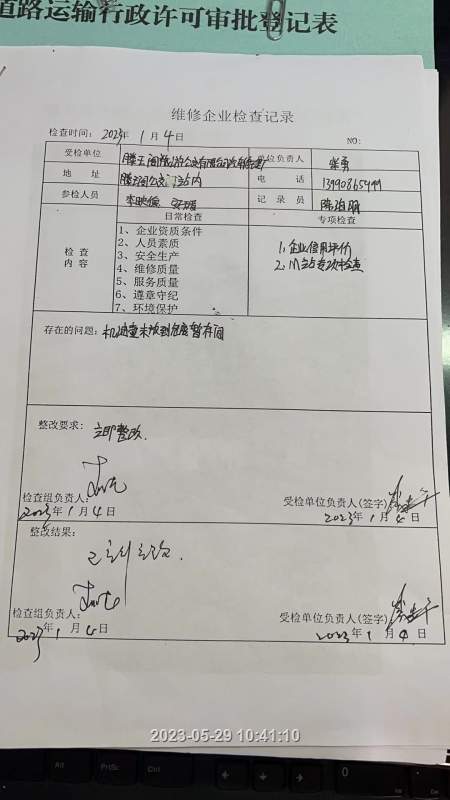 道路运输行政许可审批登记表
维修企业检查记录
检查时间: 2023年 1月 4日
NO:
受检单位
单位负责人
地 址 站内
电 话
参检人员
记 录 员
日常检查
专项检查
检 查
内 容
1、企业资质条件
2、人员素质
3、安全生产
4、维修质量
5、服务质量
6、遵章守纪
7、环境保护
1、企业信用评价
2、M站专项检查
存在的问题: 机油壶未放到危废暂存间
整改要求: 立即整改.
检查组负责人:
受检单位负责人(签字)
2023年 1月 4日
2023年 1月 4日
整改结果:
已立即整改.
检查组负责人:
受检单位负责人(签字)
2023年 1月 4日
2023年 1月 4日
2023-05-29 10:41:10
Alt
PrtSc
Ctrl
0
Ins
Del